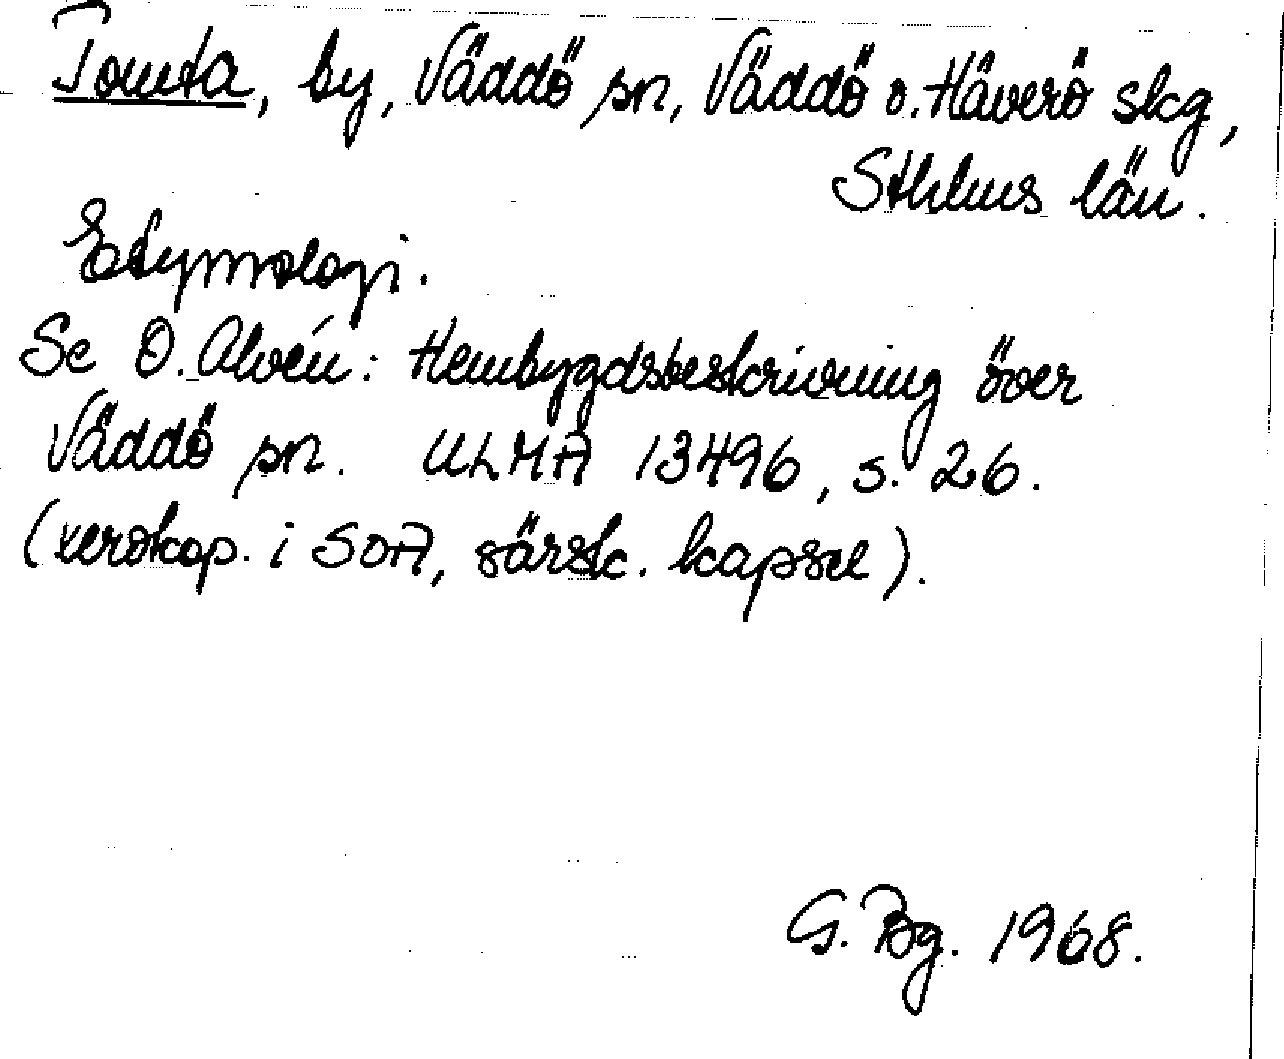 Tomta, by, Väddö sn, Väddö o. Häverö skg,
Sthlms län.
Etymologi.
Se O. Alvén: Hembygdsbeskrivning över
Väddö sn. ULMA 13496, s. 26.
(xerokop. i SOA, särsk. kapsel).
G. Bg. 1968.